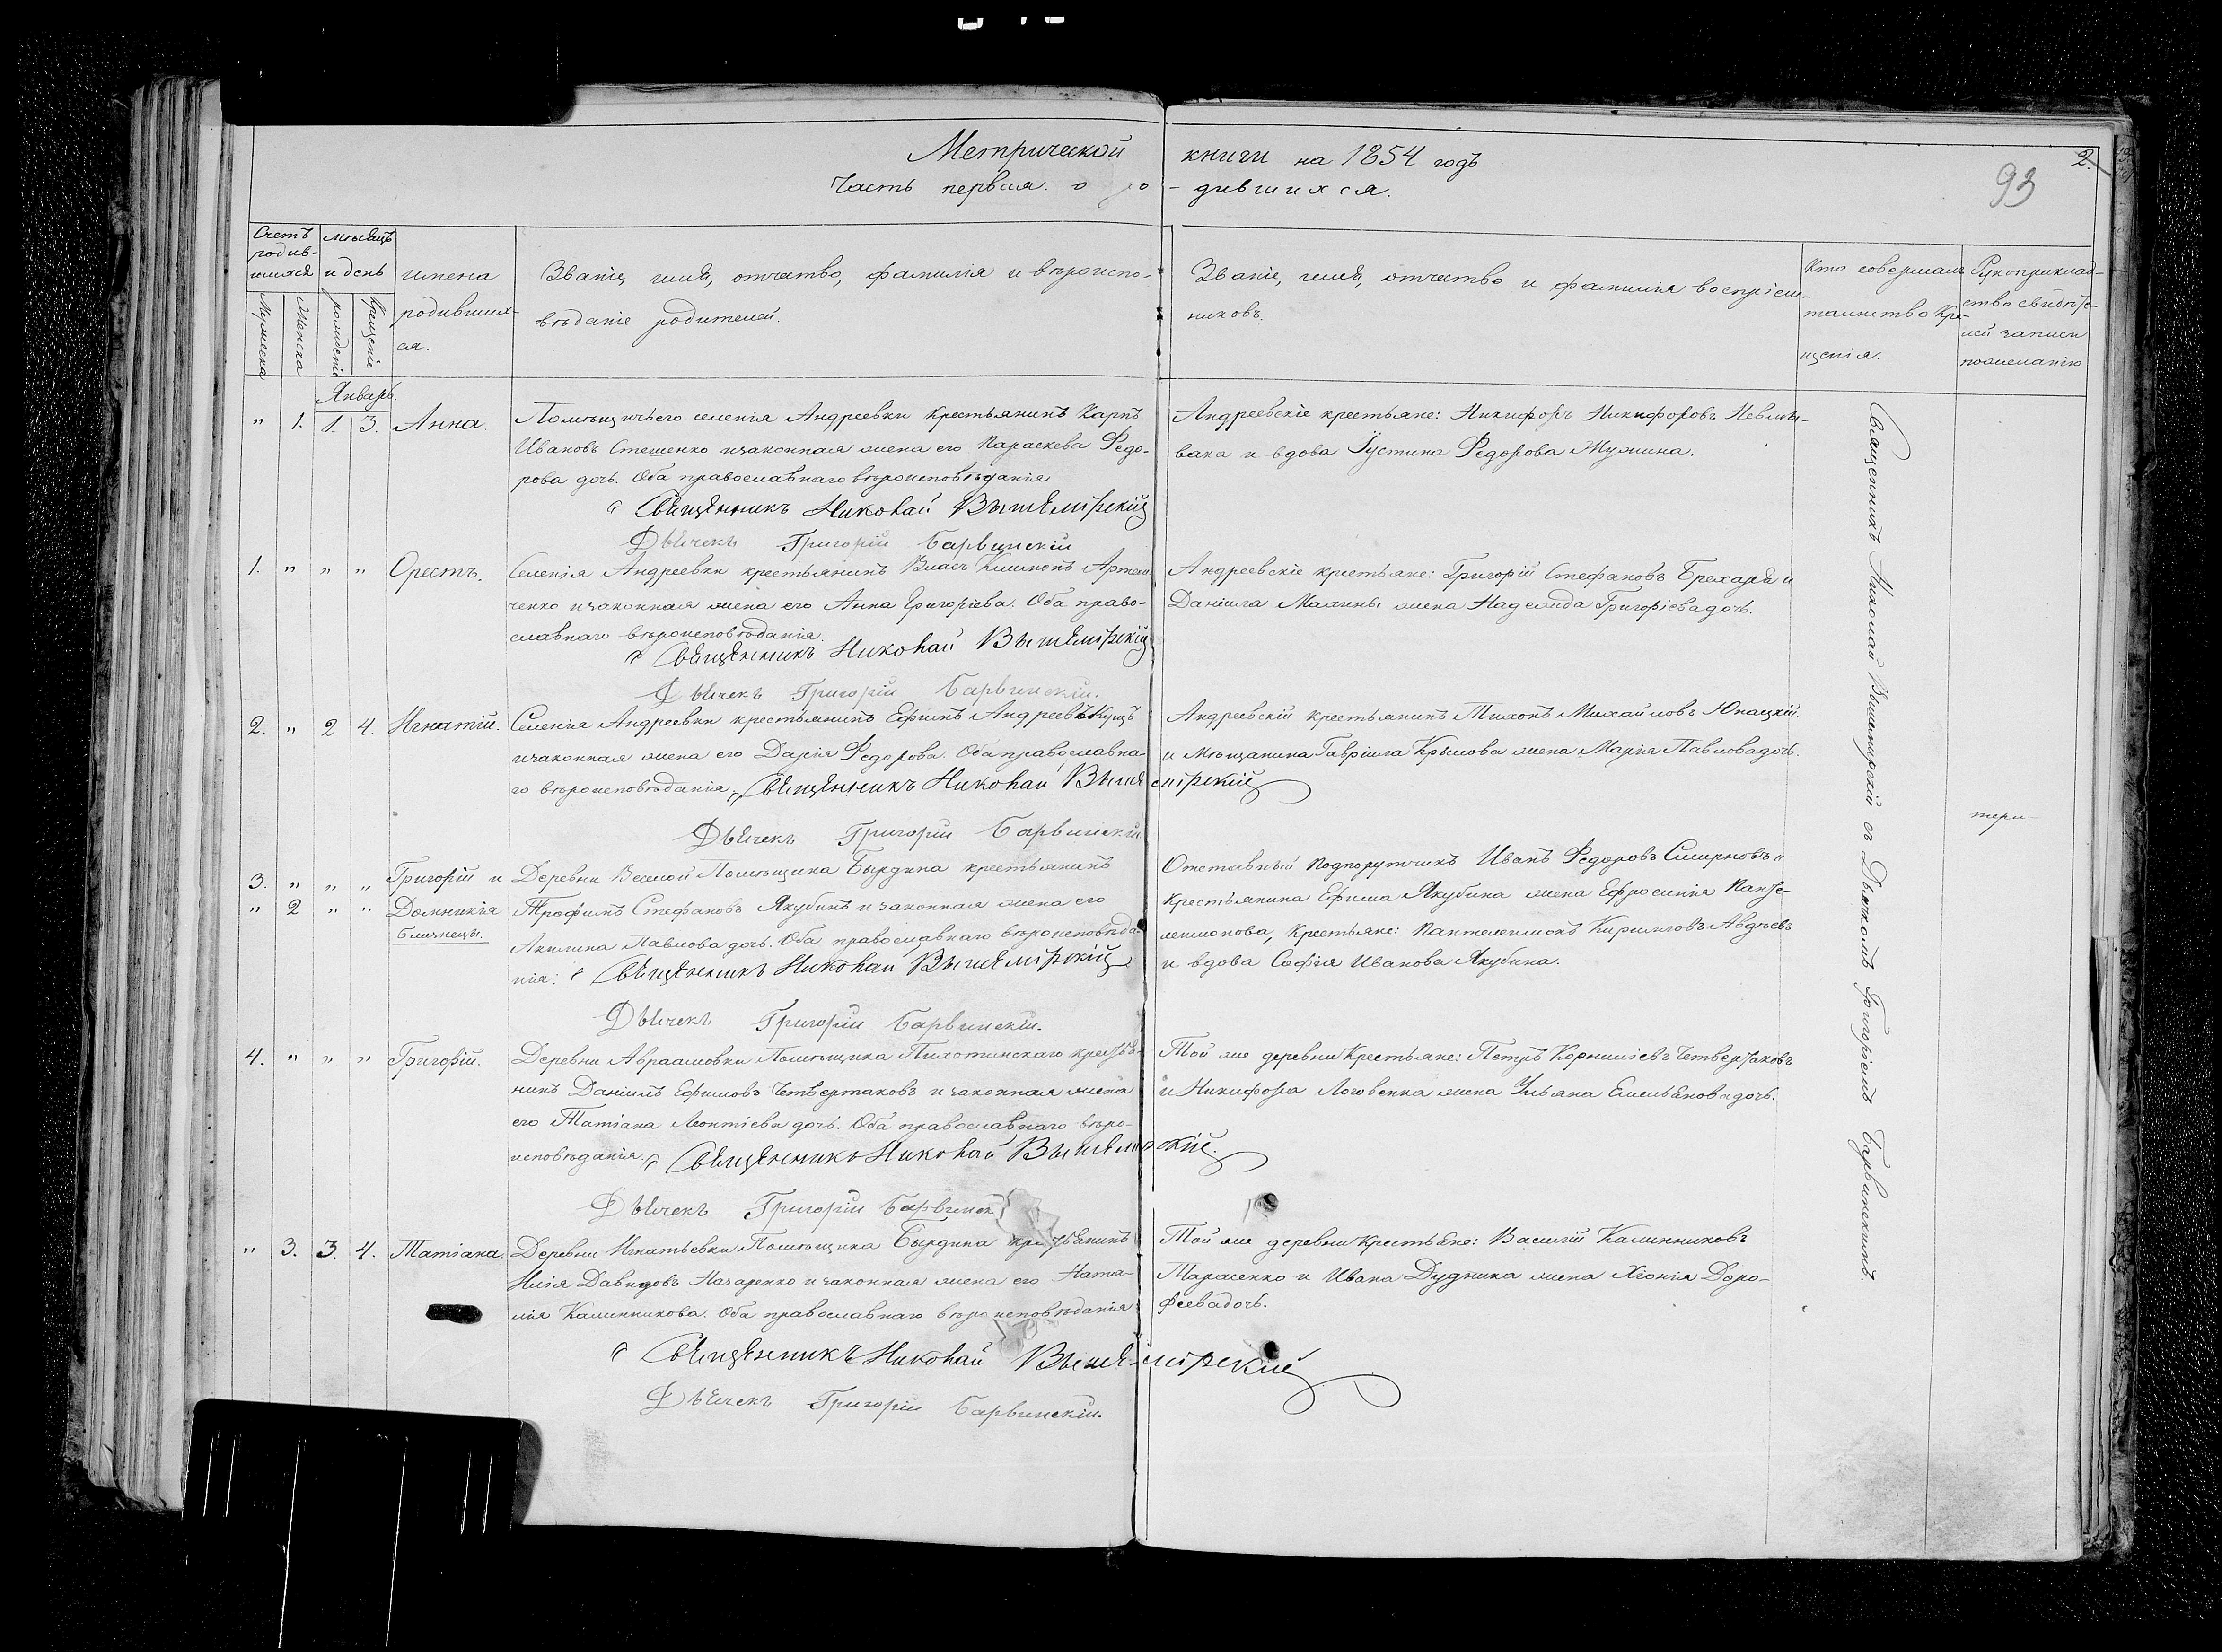 Метрической книги на 1854 годъ
2.
93
Часть первая. о ро-дившихся.
Счетъ родив-шихся
Мужеска
Женска
мѣсяцъ и день
рожденіе
Крещеніе
имена родивших-ся.
Званіе, имя, отчество, фамилія и вѣроиспо-
вѣданіе родителей.
Званіе, имя, отчество и фамилія воспріем-
никовъ.
Кто совершалъ
таинство Кре-
щенія.
Рукоприклад-
ство свидѣте-
лей записи
по желанію
Январь.
" 1. 1. 3. Анна.
Помѣщичьего селенія Андреевки крестьянинъ Карпъ
Ивановъ Стешенко и законная жена его Параскева Федо-
рова дочь. Оба православнаго вѣроисповѣданія
Священникъ Николай Вышемірскій
Дьячекъ Григорій Барвинскій
Андреевскіе крестьяне: Никифоръ Никифоровъ Невлы-
вака и вдова Іустина Федорова Мужина.
1. " " " Орестъ.
Селенія Андреевки крестьянинъ Власъ Климовъ Артем
ченко и законная жена его Анна Григоріева. Оба право-
славнаго вѣроисповѣданія.
Священникъ Николай Вышемірскій
Дьячекъ Григорій Барвинскій.
Андреевскіе крестьяне: Григорій Стефановъ Брехаря и
Даніила Малины жена Надежда Григоріева дочь.
2. " 2 4. Игнатій.
Селенія Андреевки крестьянинъ Ефимъ Андреевъ Куцъ
и законная жена его Дарія Федорова. Оба православна-
го вѣроисповѣданія, Священникъ Николай Вышемірскій
Дьячекъ Григорій Барвинскій
Андреевскій крестьянинъ Тихонъ Михайловъ Юнацкій.
и Мѣщанина Гавріила Крылова жена Марія Павлова дочь.
3. " " " Григорій и
" 2 " " Домникія
близнецы.
Деревни Веселой Помѣщика Бырдина крестьянинъ
Трофимъ Стефановъ Якубинъ и законная жена его
Акилина Павлова дочь. Оба православнаго вѣроисповѣда-
нія: Священникъ Николай Вышемірскій
Дьячекъ Григорій Барвинскій.
Отставный Подпорутчикъ Иванъ Федоровъ Смирновъ и
крестьянина Ефима Якубина жена Ефросинія Панте-
леимонова, Крестьяне: Пантелеимонъ Кириловъ Авдѣевъ
и вдова Софія Иванова Якубина.
4. " " " Григорій.
Деревни Авраамовки Помѣщика Пихотинскаго крестья-
нинъ Даніилъ Ефимовъ Четвертаковъ и законная жена
его Татіана Леонтіева дочь. Оба православнаго вѣро-
исповѣданія. Священникъ Николай Вышемірскій.
Дьячекъ Григорій Барвинск
Той же деревни Крестьяне: Петръ Корниліевъ Четвертаковъ
и Никифора Логвенка жена Ульяна Емельянова дочь.
" 3. 3. 4. Татіана.
Деревни Игнатьевки Помѣщика Бырдина крестьянинъ
Илія Давидовъ Назаренко и законная жена его Ната-
лія Калинникова. Оба православнаго вѣроисповѣданія
Священникъ Николай Вышемірскій
Дьячекъ Григорій Барвинскій.
Той же деревни Крестьяне: Василій Калинниковъ
Тарасенко и Ивана Дудника жена Хіонія Доро-
феева дочь.
Священникъ Николай Вышемірскій съ Дьячкомъ Григоріемъ Барвинскимъ.